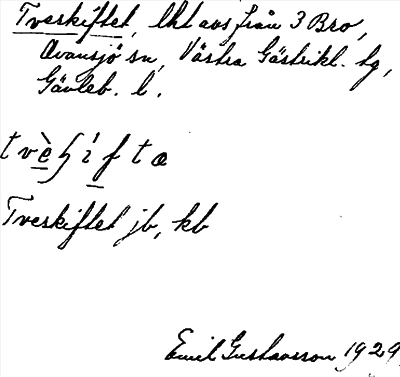 Tveskiftet, lht avs från 3 Bro,
Ovansjö sn, Västra Gästrikl. tg,
Gävleb. l.
tvèʃìfta
Tveskiftet jb, kb
Emil Gustavsson 1929